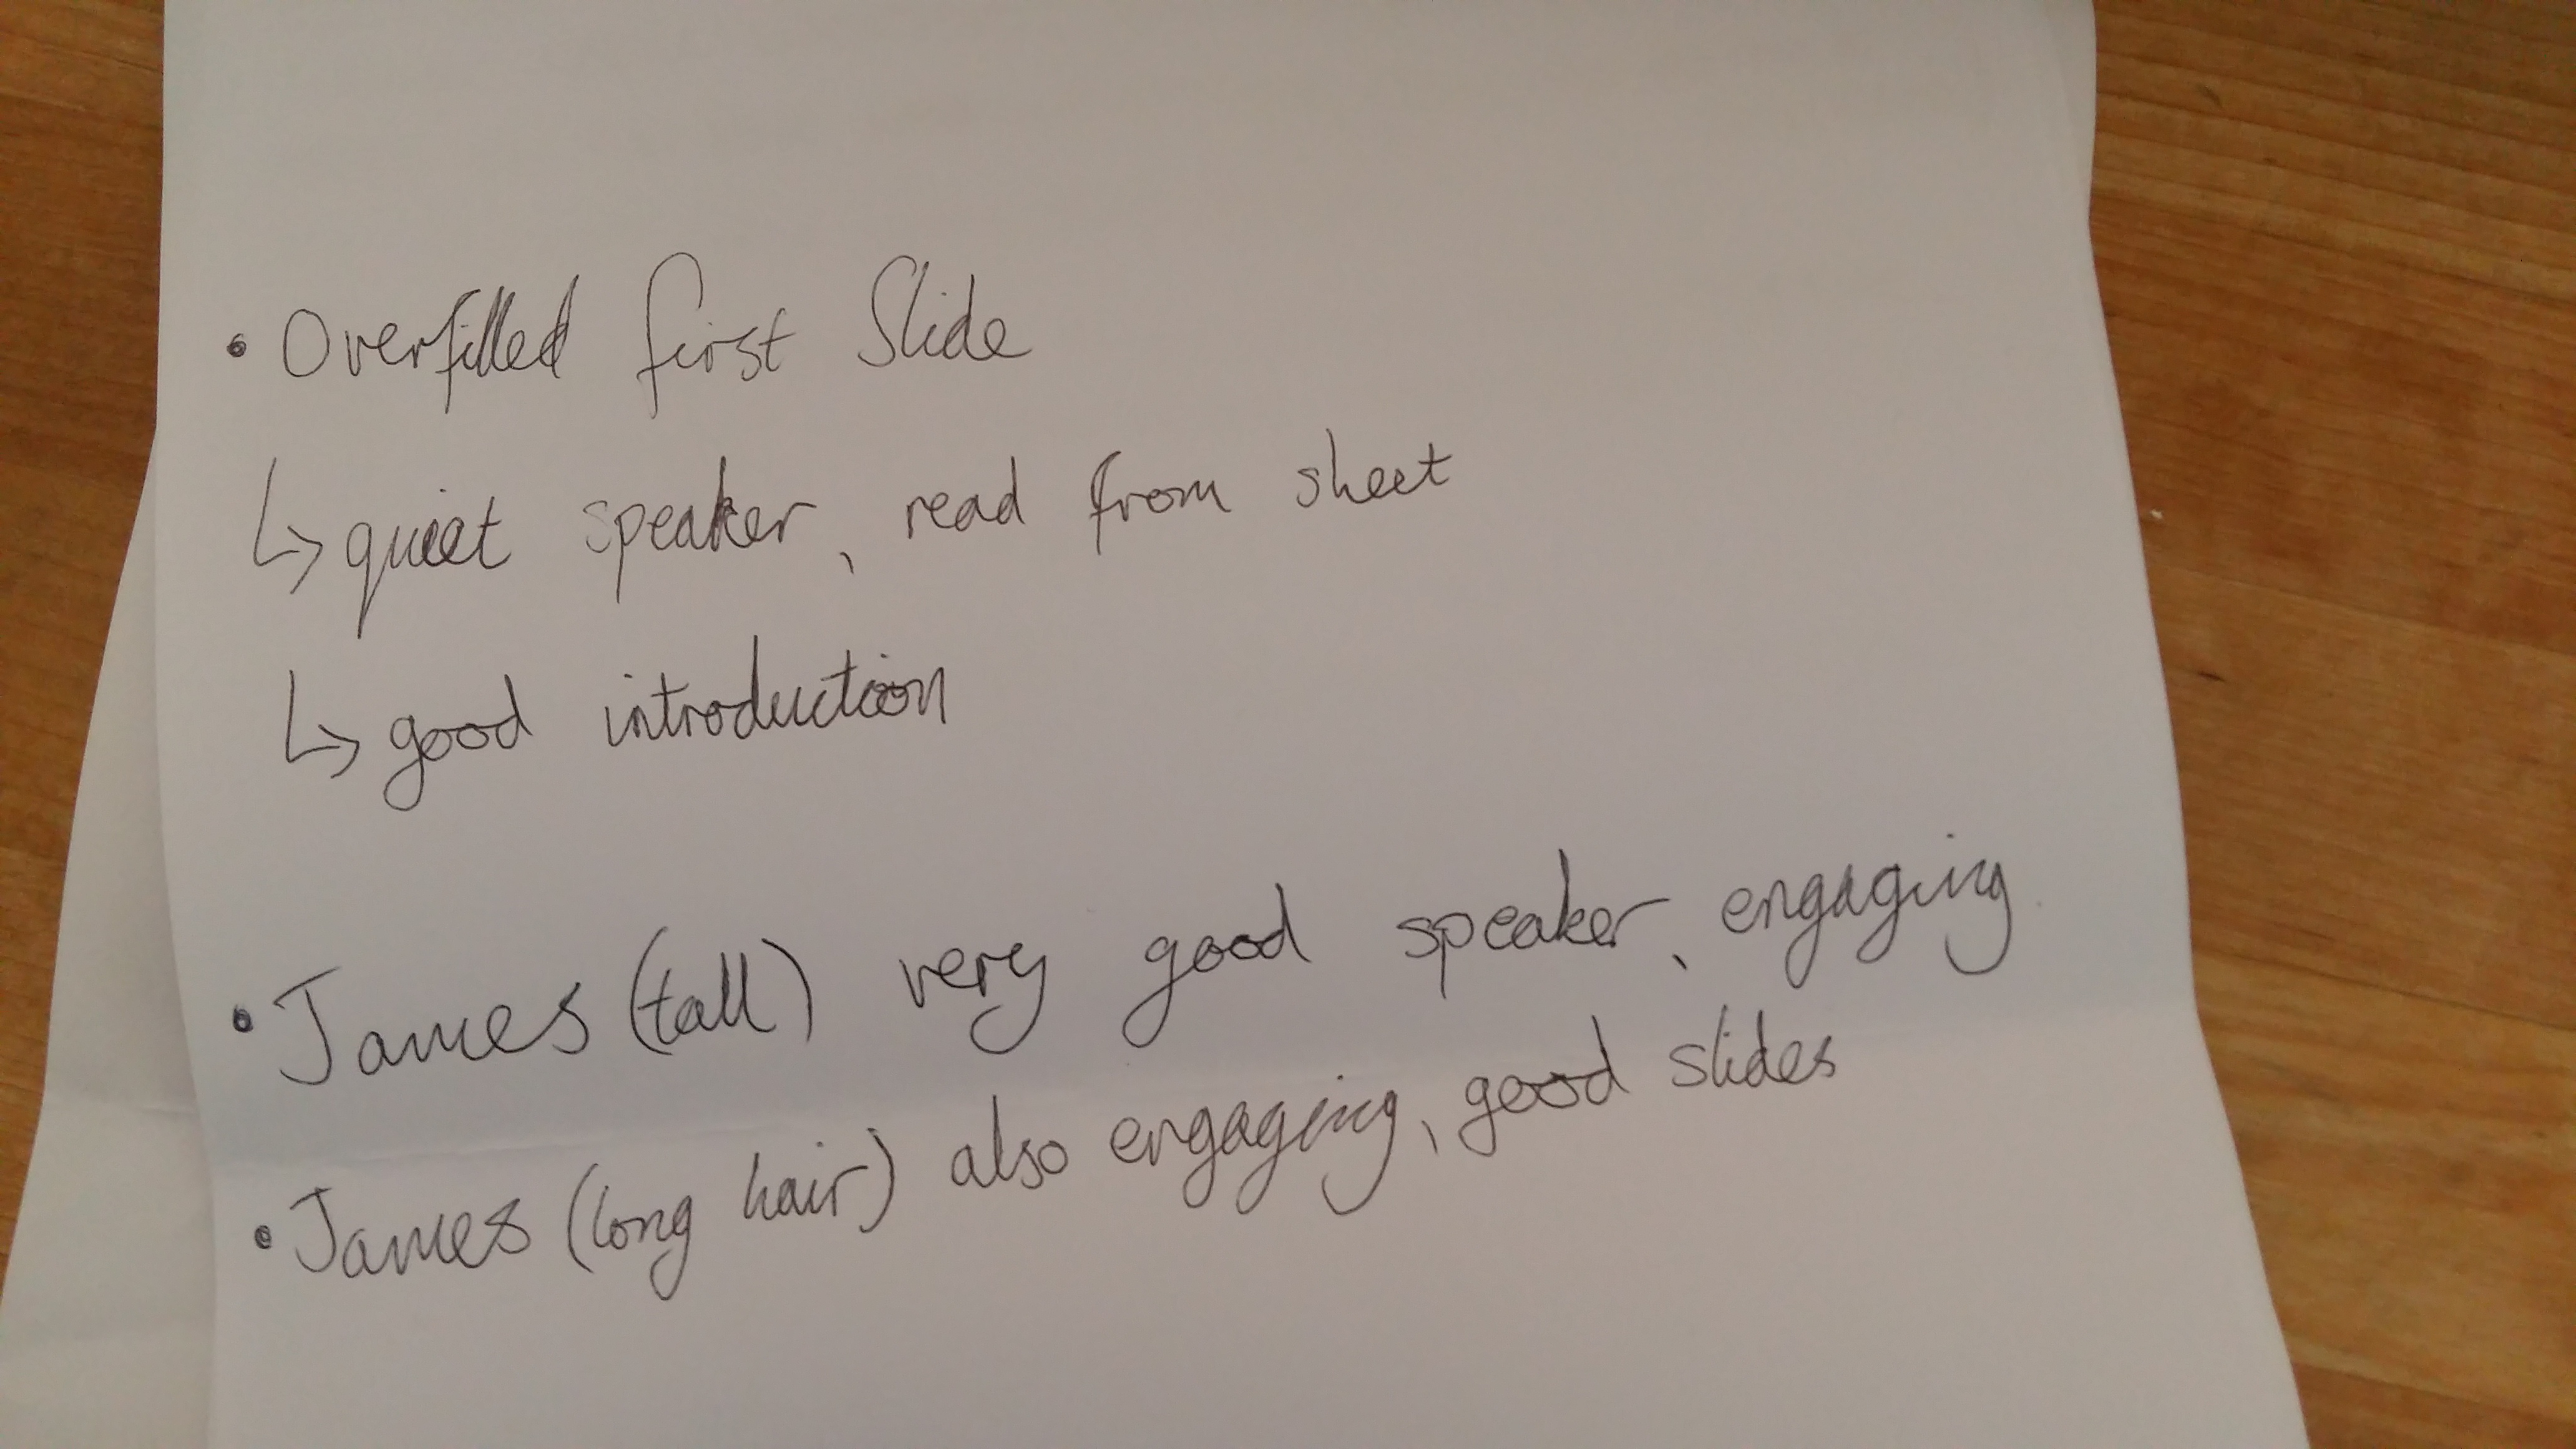 • Overfilled first Slide
↳ quiet speaker, read from sheet
↳ good introduction
• James (tall) very good speaker, engaging
• James (long hair) also engaging, good slides